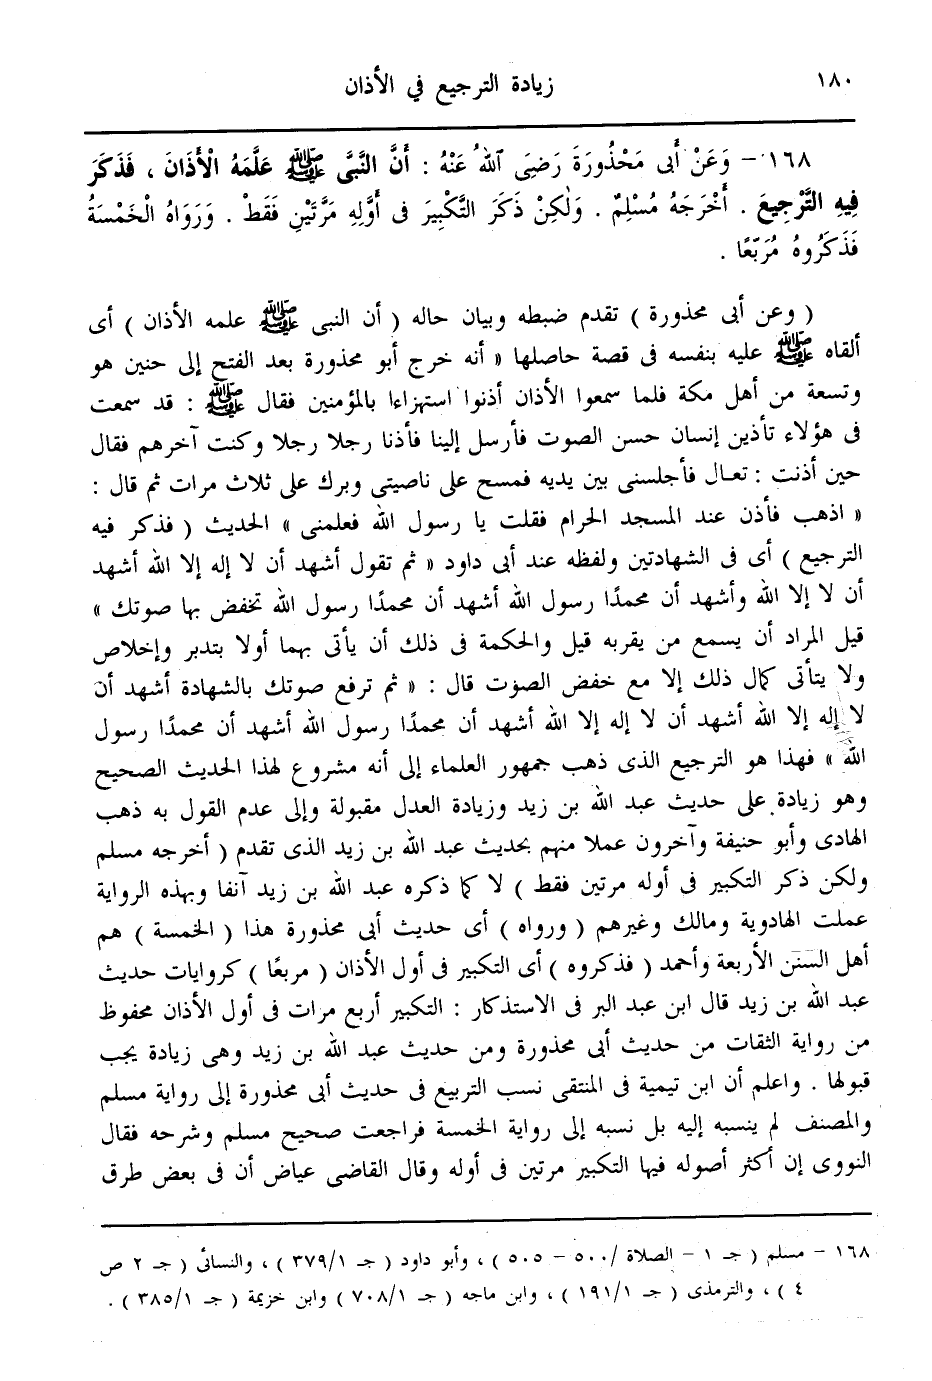 ١٨٠
زيادة الترجيع في الأذان
١٦٨ – وَعَنْ أَبِى مَحْذُورَةَ رَضِىَ ٱللهُ عَنْهُ : أَنَّ النَّبِيَّ ﷺ عَلَّمَهُ الْأَذَانَ ، فَذَكَرَ
فِيهِ التَّرْجِيعَ . أَخْرَجَهُ مُسْلِمٌ . وَلٰكِنْ ذَكَرَ التَّكْبِيرَ فِى أَوَّلِهِ مَرَّتَيْنِ فَقَطْ . وَرَوَاهُ الْخَمْسَةُ
فَذَكَرُوهُ مُرَبَّعًا .
( وعن أبى محذورة ) تقدم ضبطه وبيان حاله ( أن النبى ﷺ علمه الأذان ) أى
ألقاه ﷺ عليه بنفسه فى قصة حاصلها « أنه خرج أبو محذورة بعد الفتح إلى حنين هو
وتسعة من أهل مكة فلما سمعوا الأذان أذنوا استهزاءا بالمؤمنين فقال ﷺ : قد سمعت
فى هؤلاء تأذين إنسان حسن الصوت فأرسل إلينا فأذنا رجلا رجلا وكنت آخرهم فقال
حين أذنت : تعال فأجلسنى بين يديه فمسح على ناصيتى وبرك على ثلاث مرات ثم قال :
« اذهب فأذن عند المسجد الحرام فقلت يا رسول الله فعلمنى » الحديث ( فذكر فيه
الترجيع ) أى فى الشهادتين ولفظه عند أبى داود « ثم تقول أشهد أن لا إله إلا الله أشهد
أن لا إلا الله وأشهد أن محمدًا رسول الله أشهد أن محمدًا رسول الله تخفض بها صوتك »
قيل المراد أن يسمع من يقربه قيل والحكمة فى ذلك أن يأتى بهما أولا بتدبر وإخلاص
ولا يتأتى كمال ذلك إلا مع خفض الصوت قال : « ثم ترفع صوتك بالشهادة أشهد أن
لا إله إلا الله أشهد أن لا إله إلا الله أشهد أن محمدًا رسول الله أشهد أن محمدًا رسول
الله » فهذا هو الترجيع الذى ذهب جمهور العلماء إلى أنه مشروع لهذا الحديث الصحيح
وهو زيادة على حديث عبد الله بن زيد وزيادة العدل مقبولة وإلى عدم القول به ذهب
الهادى وأبو حنيفة وآخرون عملا منهم بحديث عبد الله بن زيد الذى تقدم ( أخرجه مسلم
ولكن ذكر التكبير فى أوله مرتين فقط ) لا كما ذكره عبد الله بن زيد آنفا وبهذه الرواية
عملت الهادوية ومالك وغيرهم ( ورواه ) أى حديث أبى محذورة هذا ( الخمسة ) هم
أهل السنن الأربعة وأحمد ( فذكروه ) أى التكبير فى أول الأذان ( مربعًا ) كروايات حديث
عبد الله بن زيد قال ابن عبد البر فى الاستذكار : التكبير أربع مرات فى أول الأذان محفوظ
من رواية الثقات من حديث أبى محذورة ومن حديث عبد الله بن زيد وهى زيادة يجب
قبولها . واعلم أن ابن تيمية فى المنتقى نسب التربيع فى حديث أبى محذورة إلى رواية مسلم
والمصنف لم ينسبه إليه بل نسبه إلى رواية الخمسة فراجعت صحيح مسلم وشرحه فقال
النووى إن أكثر أصوله فيها التكبير مرتين فى أوله وقال القاضى عياض أن فى بعض طرق
١٦٨ – مسلم ( جـ ١ – الصلاة / ٥٠٠ – ٥٠٥ ) ، وأبو داود ( جـ ٣٧٩/١ ) ، والنسائى ( جـ ٢ ص
٤ ) ، والترمذى ( جـ ١٩١/١ ) ، وابن ماجه ( جـ ٧٠٨/١ ) وابن خزيمة ( جـ ٣٨٥/١ ) .